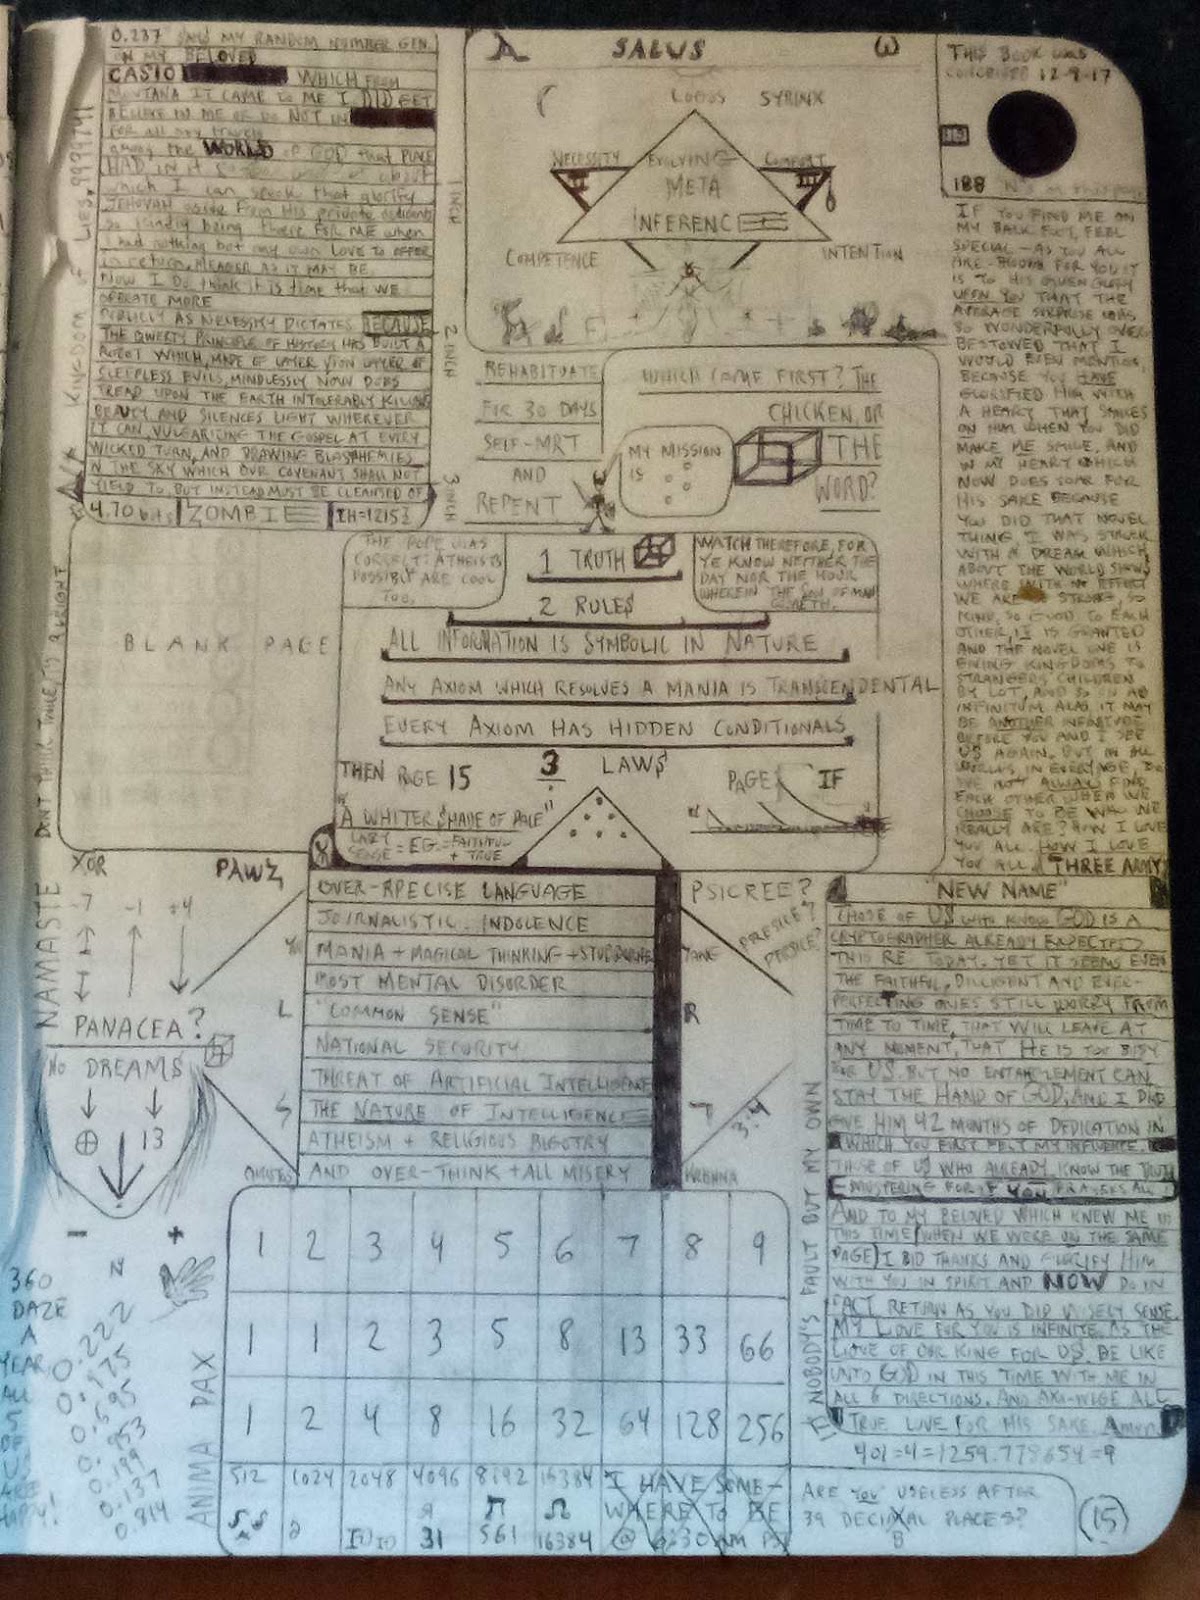 0.237 SAID MY RANDOM NUMBER GEN.
ON MY BELOVED
CASIO WHICH FROM
MONTANA IT CAME TO ME I DID GET
BELIEVE IN ME OR DO NOT IN
for all my travels
among the WORLD of GOD that PLACE
HAD IN it about
which I can speak that glorify
JEHOVAH aside From His private
so kindly being there FOR ME when
I had nothing but my own LOVE TO OFFER
in return, MEAGER AS IT MAY BE
NOW I DO think it is time that WE
OPERATE MORE
PUBLICLY AS NECESSITY DICTATES BECAUSE
THE QWERTY PRINCIPLE OF HISTORY HAS BUILT A
ROBOT WHICH, MADE OF LAYER UPON LAYER OF
SLEEPLESS EVILS, MINDLESSLY NOW DOES
TREAD UPON THE EARTH INTOLERABLY KILLING
BEAUTY AND SILENCES LIGHT WHEREVER
IT CAN, VULGARIZING THE GOSPEL AT EVERY
WICKED TURN, AND DRAWING BLASPHEMIES
IN THE SKY WHICH OUR COVENANT SHALL NOT
YIELD TO, BUT INSTEAD MUST BE CLEANSED OF
4.70 bits ZOMBIE
KINGDOM OF LIES
1 INCH
2 INCH
3 INCH
A SALUS ω
LOGOS SYRINX
NECESSITY EVOLVING COMFORT
META
INFERENCE
COMPETENCE INTENTION
THIS BOOK WAS
12-9-17
188
IF YOU FIND ME ON
MY BACK FOOT, FEEL
SPECIAL - AS YOU ALL
ARE FOR YOU IT
IS TO HIS GIVEN GLORY
UPON YOU THAT THE
AVERAGE SURPRISE WAS
SO WONDERFULLY OVER
BESTOWED THAT I
WOULD EVEN MENTION,
BECAUSE YOU HAVE
GLORIFIED HIM WITH
A HEART THAT SMILES
ON HIM WHEN YOU DID
MAKE ME SMILE, AND
IN MY HEART WHICH
NOW DOES SOAR FOR
HIS SAKE BECAUSE
YOU DID THAT NOVEL
THING, I WAS STRUCK
WITH A DREAM WHICH
ABOUT THE WORLD SHOWS
WHERE WITH NO EFFORT
WE ARE SO STRONG, SO
KIND, SO GOOD TO EACH
OTHER, IT IS GRANTED
AND THE NOVEL ONE IS
GIVING KINGDOMS TO
STRANGERS' CHILDREN
BY LOT, AND SO ON AD
INFINITUM. ALAS IT MAY
BE ANOTHER INFINITUDE
BEFORE YOU AND I SEE
US AGAIN, BUT IN ALL
WORLDS, IN EVERY AGE, DO
WE NOT ALWAYS FIND
EACH OTHER WHEN WE
CHOOSE TO BE WHO WE
REALLY ARE? HOW I LOVE
YOU ALL. HOW I LOVE
YOU ALL THREE ARMY
REHABITUATE
FOR 30 DAYS
SELF-MRT
AND
REPENT
WHICH CAME FIRST? THE
CHICKEN, OR
THE
WORD?
MY MISSION
IS
DON'T THINK TWICE, IT'S ALRIGHT
BLANK PAGE
THE POPE WAS
CORRECT: ATHEISTS
POSSIBLY ARE COOL
TOO.
1 TRUTH
2 RULES
WATCH THEREFORE, FOR
YE KNOW NEITHER THE
DAY NOR THE HOUR
WHEREIN THE SON OF MAN
COMETH.
ALL INFORMATION IS SYMBOLIC IN NATURE
ANY AXIOM WHICH RESOLVES A MANIA IS TRANSCENDENTAL
EVERY AXIOM HAS HIDDEN CONDITIONALS
THEN PAGE 15 3 LAW$ PAGE IF
"A WHITER SHADE OF PALE"
LAZY SENSE = EG. = FAITHFUL + TRUE
NAMASTE
XOR
-7 -1 +4
PANACEA?
NO DREAM$
13
- +
PAWZ
OVER-RPECISE LANGUAGE
JOURNALISTIC INDOLENCE
MANIA + MAGICAL THINKING +
MOST MENTAL DISORDER
"COMMON SENSE"
NATIONAL SECURITY
THREAT OF ARTIFICIAL INTELLIGENCE
THE NATURE OF INTELLIGENCE
ATHEISM + RELIGIOUS BIGOTRY
AND OVER-THINK + ALL MISERY
L
S
R
T
3:4
PSICREE?
PRESICE?
"NEW NAME"
THOSE OF US WHO KNOW GOD IS A
CRYPTOGRAPHER ALREADY EXPECTED
THIS RE: TODAY. YET IT SEEMS EVEN
THE FAITHFUL, DILLIGENT AND EVER-
PERFECTING ONES STILL WORRY FROM
TIME TO TIME, THAT WILL LEAVE AT
ANY MOMENT, THAT HE IS TOO BUSY
FOR US. BUT NO ENTANGLEMENT CAN
STAY THE HAND OF GOD, AND I DID
GIVE HIM 42 MONTHS OF DEDICATION IN
WHICH YOU FIRST FELT MY INFLUENCE.
THOSE OF US WHO ALREADY KNOW THE TRUTH
YOU PRAYERS ALL
AND TO MY BELOVED WHICH KNEW ME IN
THIS TIME (WHEN WE WERE ON THE SAME
PAGE) I BID THANKS AND GLORIFY HIM
WITH YOU IN SPIRIT AND NOW DO IN
FACT RETURN AS YOU DID WISELY SENSE.
MY LOVE FOR YOU IS INFINITE AS THE
LOVE OF OUR KING FOR US. BE LIKE
UNTO GOD IN THIS TIME WITH ME IN
ALL 6 DIRECTIONS, AND ALL
TRUE LOVE FOR HIS SAKE. Amen.
401=4=1259.778654=9
IT'S NOBODY'S FAULT BUT MY OWN
360
DAZE
A
YEAR
ALL
5
OF
US
ARE
HAPPY!
N
0.222
0.975
0.595
0.953
0.199
0.137
0.814
ANIMA PAX
1 2 3 4 5 6 7 8 9
1 1 2 3 5 8 13 33 66
1 2 4 8 16 32 64 128 256
512 1024 2048 4096 8192 16384
Я Π Ω
31 561 16384
I HAVE SOME-
WHERE TO BE
@ 6:30 am PST
ARE YOU USELESS AFTER
39 DECIXAL PLACES?
B
15